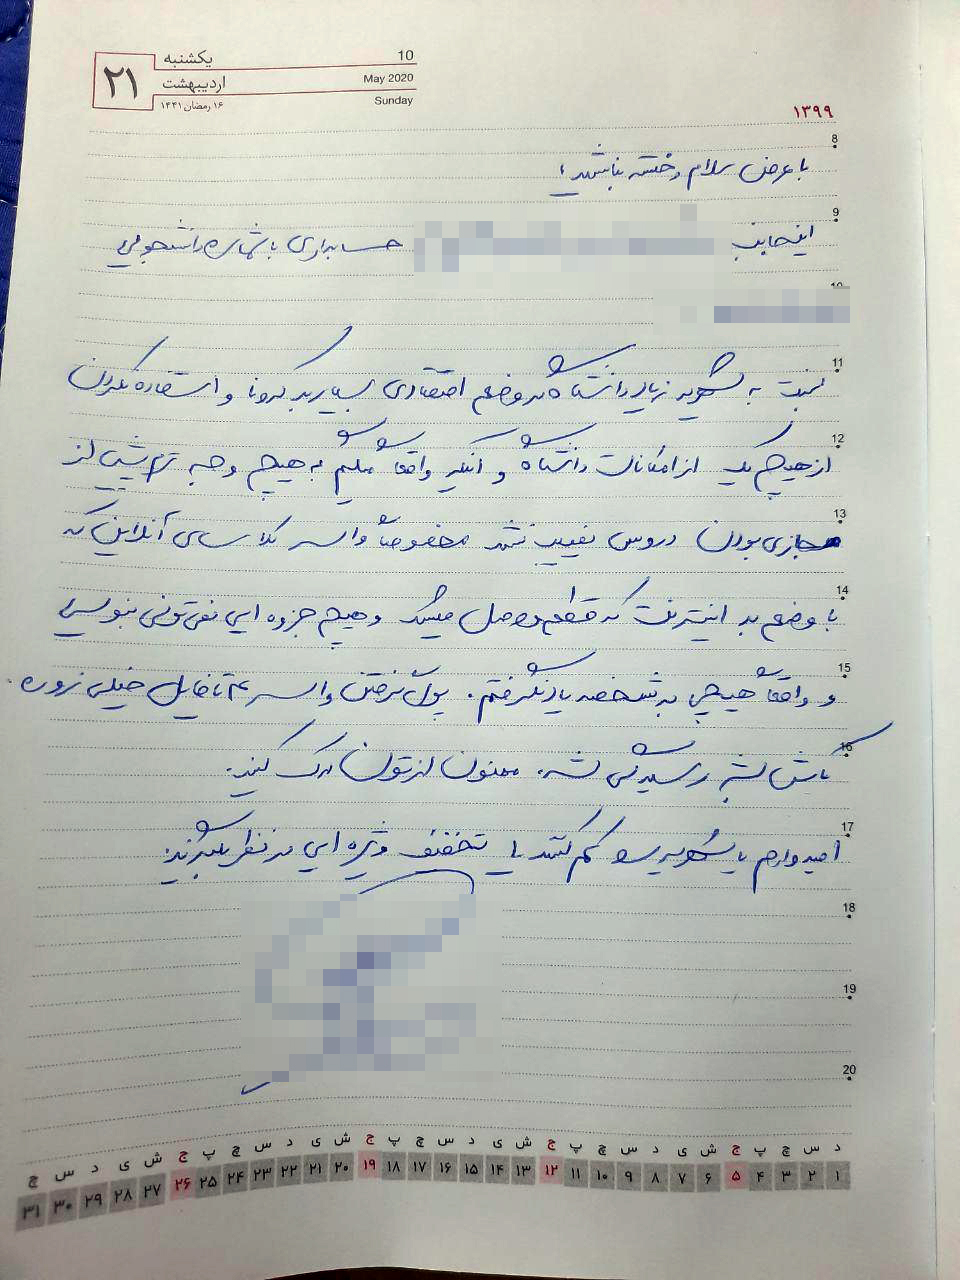 یکشنبه 10
۲۱ اردیبهشت May 2020
۱۶ رمضان ۱۴۴۱ Sunday
۱۳۹۹
8
با عرض سلام و خسته نباشید؛
9
اینجانب حسابداری با شماره دانشجویی
10
11
نسبت به شهریه زیاد دانشگاه در وضع اقتصادی بسیار بد کرونا و استفاده نکردن
12
از هیچ یک از امکانات دانشگاه و اینکه واقعاً میگیم به هیچ وجه ترم پیش از
13
مجازی بودن دروس نصیب نشد مخصوصاً واسه کلاسهای آنلاین که
14
با وضع بد اینترنت که قطع و وصل میشد و هیچ جزوه ای نمی تونی بنویسی
15
و واقعاً هیچی به شخصه یاد نگرفتم. پول گرفتن واسه ۴ تا فایل خیلی زوره.
16
کاش بشه رسیدگی بشه. ممنون از تون درک کنید.
17
امیدوارم یا شهریه رو کم کنید یا تخفیف ویژه ای در نظر بگیرید.
18
19
20
د س چ پ ج ش ی د س چ پ ج ش ی د س چ پ ج ش ی د س چ پ ج ش ی د س چ
۱ ۲ ۳ ۴ ۵ ۶ ۷ ۸ ۹ ۱۰ ۱۱ ۱۲ ۱۳ ۱۴ ۱۵ ۱۶ ۱۷ ۱۸ ۱۹ ۲۰ ۲۱ ۲۲ ۲۳ ۲۴ ۲۵ ۲۶ ۲۷ ۲۸ ۲۹ ۳۰ ۳۱